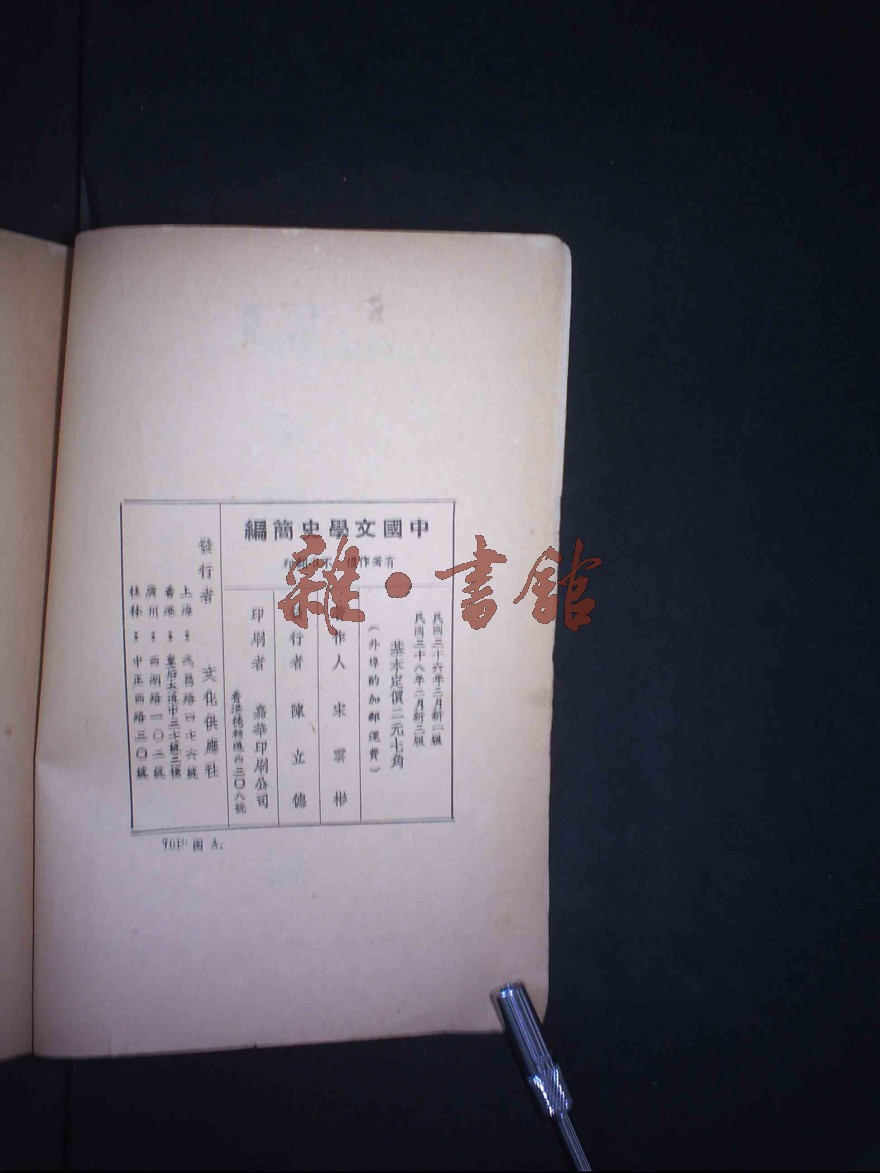 中國文學史簡編
有著作權 不准翻印
民國三十六年三月新二版
民國三十八年二月新三版
基本定價二元七角
(外埠酌加郵運費)
著作人 宋雲彬
發行者 陳立德
印刷者 嘉華印刷公司
香港德輔道西三〇六號
發行者 文化供應社
上海 武昌路四七六號
香港 皇后大道中三七號三樓
廣州 西湖路一〇二號
桂林 中正西路三〇號
雜·書館